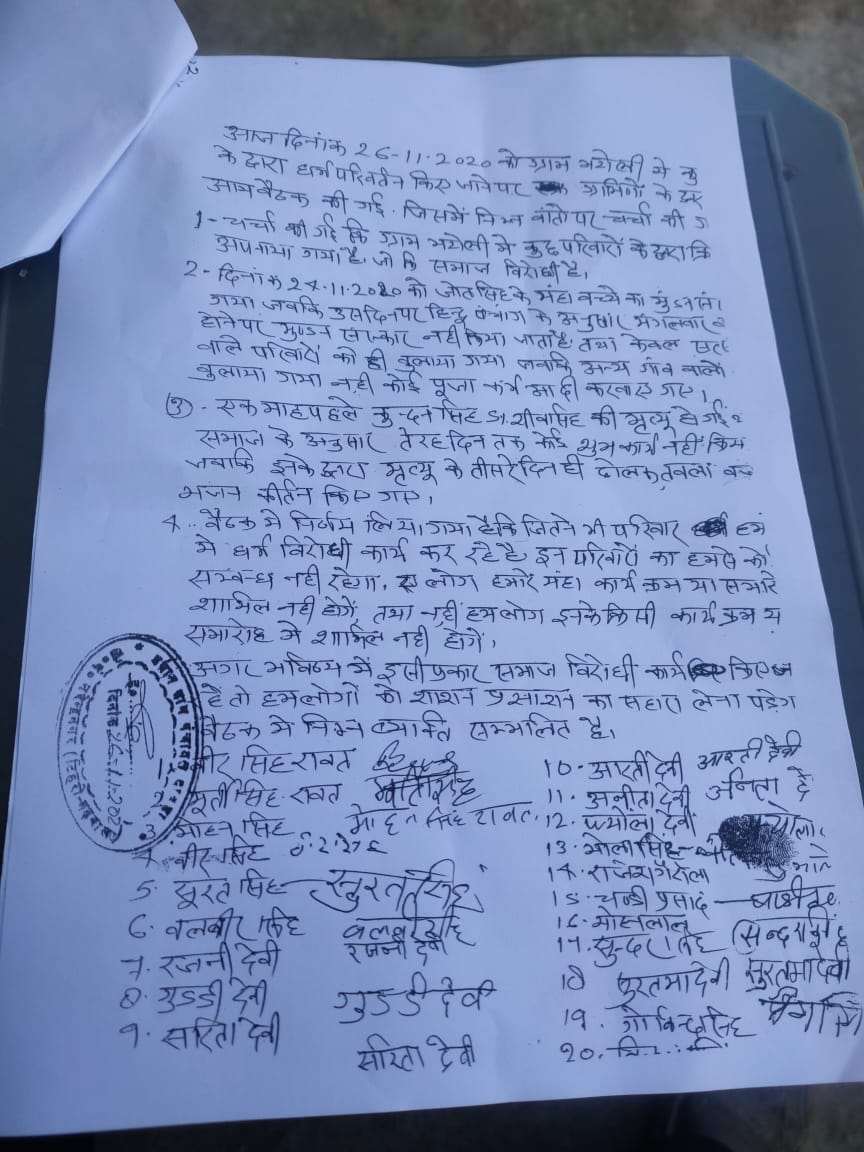 आज दिनांक 26-11-2020 को ग्राम में कु
के द्वारा धर्म परिवर्तन किए जाने पर ग्रामिणों के द्वर
आम बैठक की गई. जिसमें निम्न बातों पर चर्चा की ग
1- चर्चा की गई कि ग्राम में कुछ परिवारों के द्वारा क्रि
अपनाया गया है. जो कि समाज विरोधी है।
2- दिनांक 24.11.2020 को जोतसिंह के यंहा बच्चे का मुंडन सं
गया जबकि उस दिन पर हिन्दु पंचाग के अनुसार मंगलवार
होने पर मुण्डन संस्कार नहीं किया जाता है, तथा केवल
वाले परिवारों को ही बुलाया गया जबकि अन्य गांव वालों
बुलाया गया नही कोई पूजा कर्म आदी करवाए गए।
③ - एक माह पहले कुन्दन सिंह S/o शीवसिंह की मृत्यू हो गई
समाज के अनुसार तेरह दिन तक कोई शुभ कार्य नहीं किय
जबकि इनके द्वारा मृत्यू के तीसरे दिन ही ढोलक तबला
भजन कीर्तन किए गए।
4.. बैठक में निर्णय लिया गया है कि जितने भी परिवार हम
में धर्म विरोधी कार्य कर रहे है इन परिवारों का हमसे को
सम्बन्ध नही रहेगा. ए लोग हमारे यंहा कार्य क्रम या समारो
शामिल नही होगें, तथा नही हम लोग इनके किसी कार्य क्रम य
समारोह में शामिल नही होगें।
अगर भविष्य में इसी प्रकार समाज विरोधी कार्य किए ज
है तो हम लोगों को शाशन प्रसाशन का सहारा लेना पड़ेग
बैठक में निम्न व्यक्ति सम्मलित है।
बीर सिंह रावत
मुर्ती सिंह रावत
3 मोहन सिंह मोहन सिंह रावत
4 बीर सिंह
5. सूरत सिंह सुरत सिंह
6. बलबीर सिंह बलबीर सिंह
7. रजनी देवी रजनी देवी
8. गुडडी देवी गुडडी देवी
9. सरिता देवी सरिता देवी
10- आरती देवी आरती देवी
11. अनीता देवी अनिता दे
12. देवी
13. भोला सिंह
14. राजेश
15. चण्डी प्रसाद
16. मोहनलाल
17. सुन्दर सिंह
18 देवी
19. गोविन्द सिंह
20.
दिनांक 26-11-2020